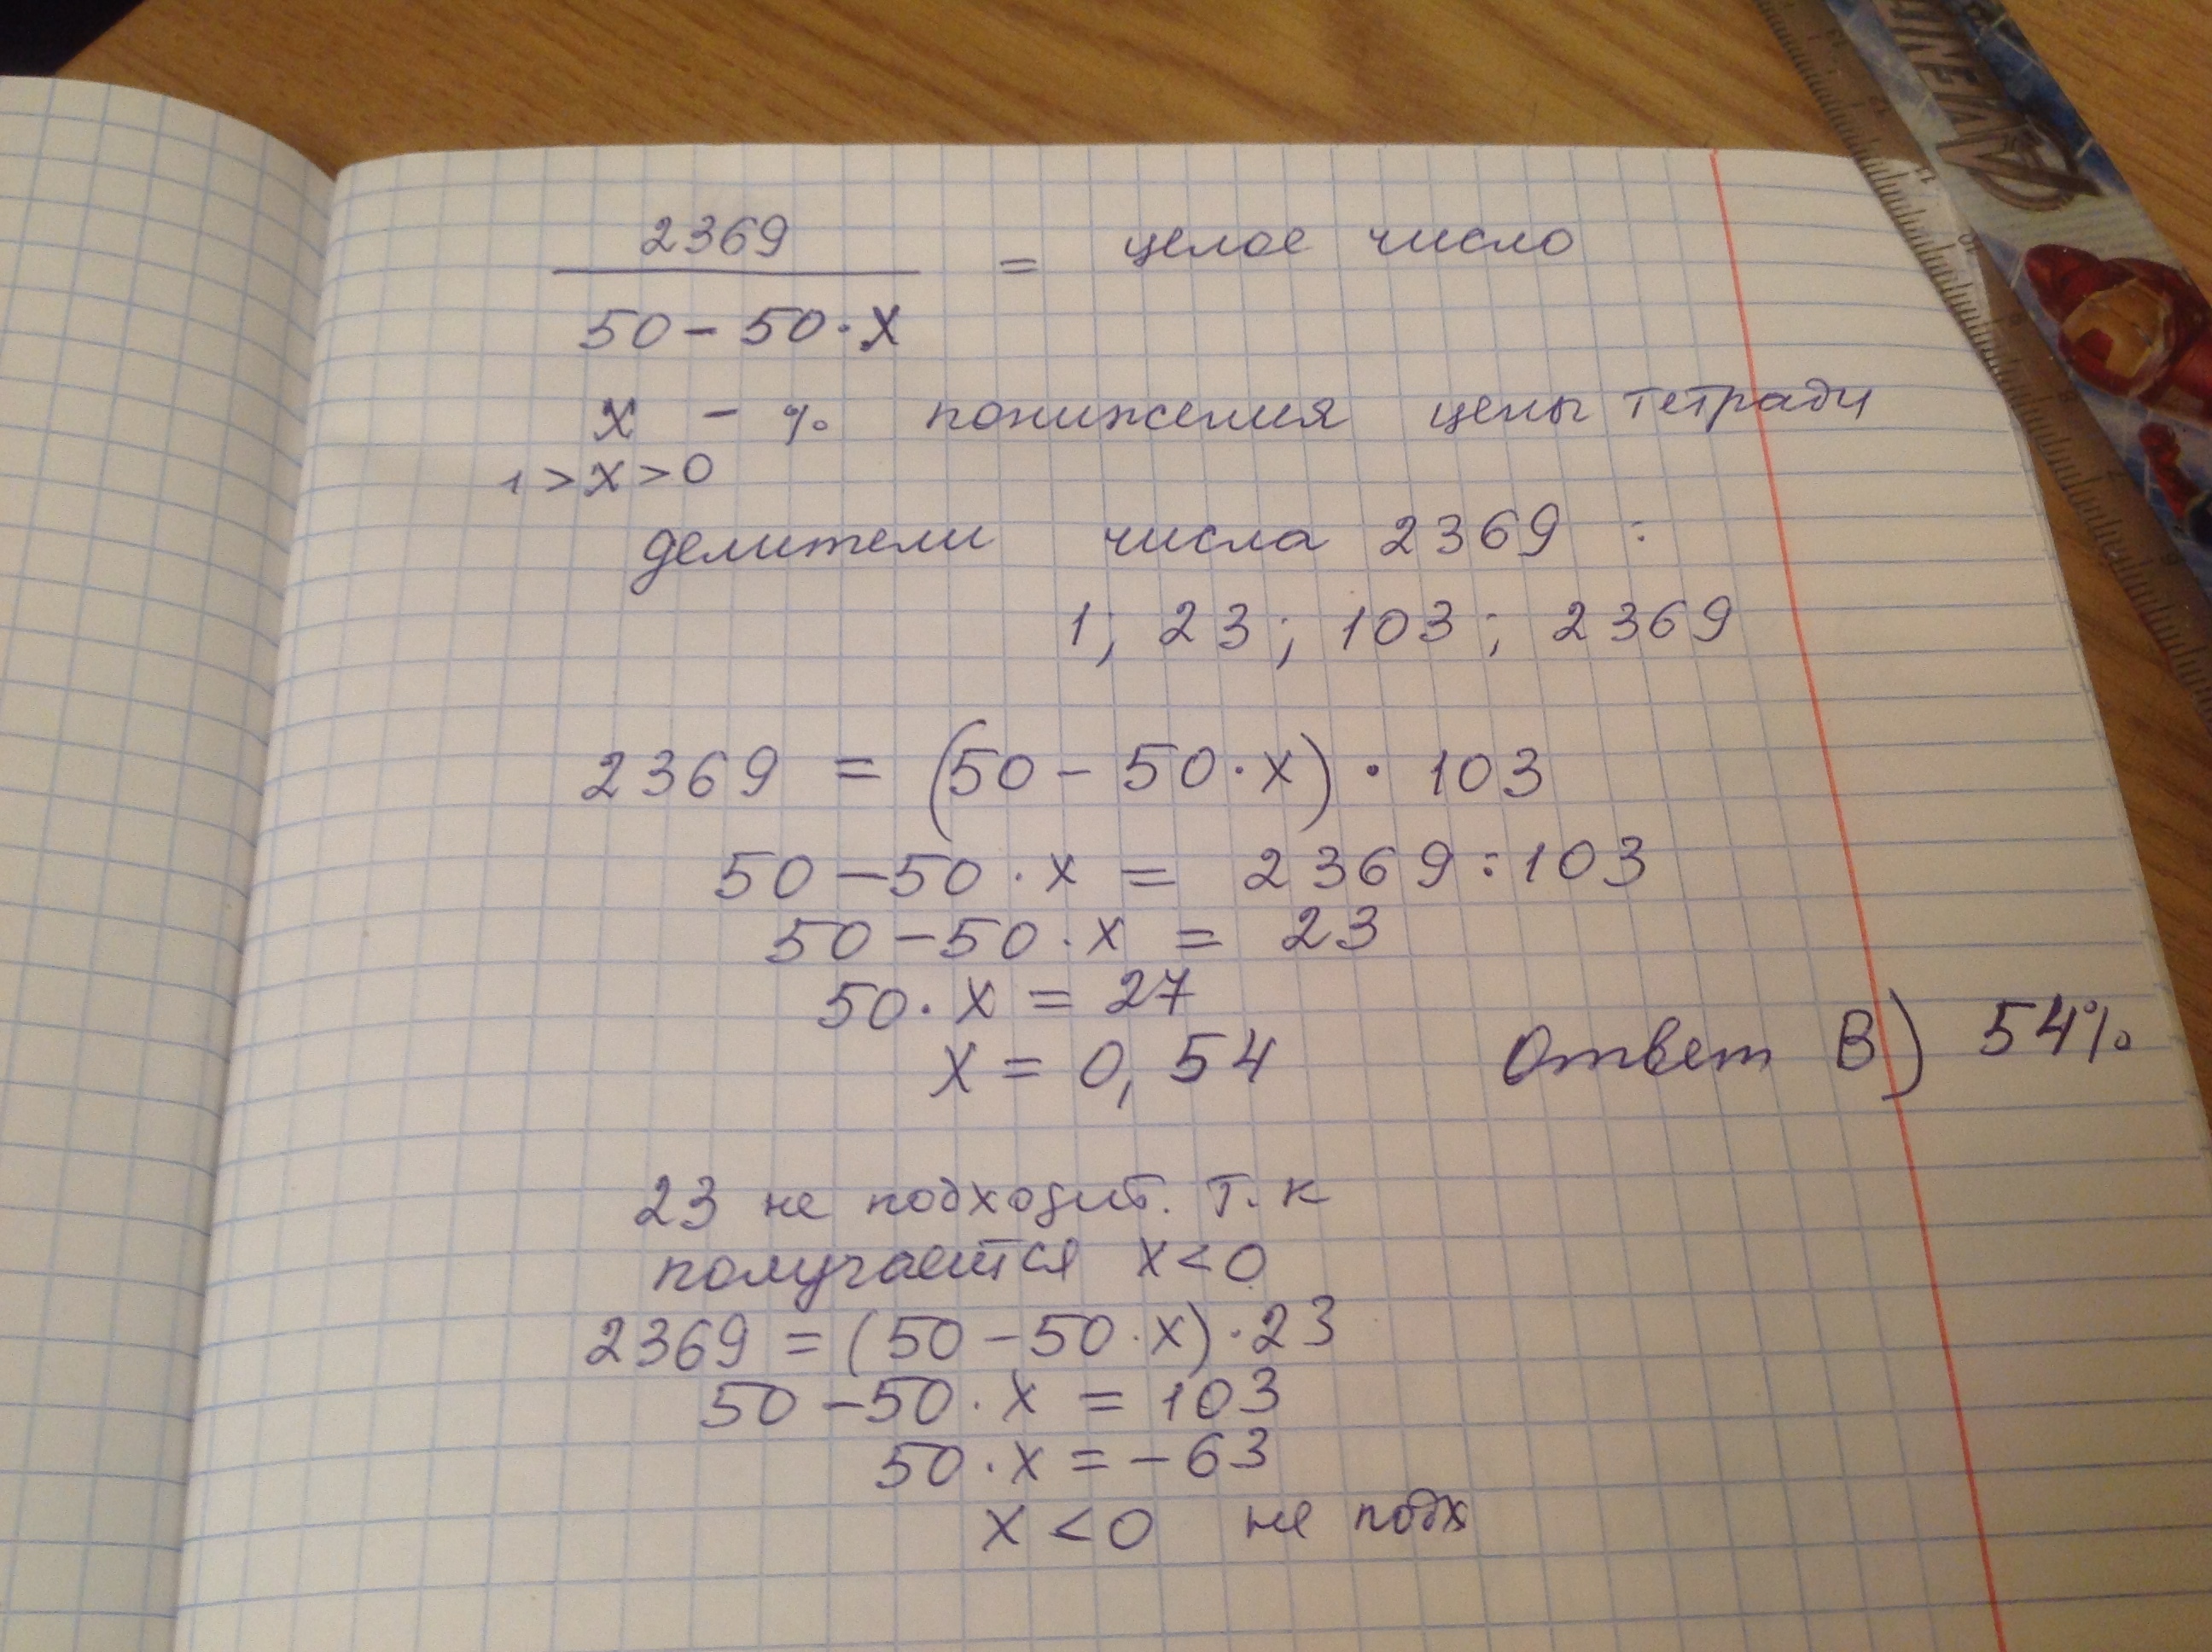 2369
50 - 50 · x
= целое число
x - % понижения цены тетради
1 > x > 0
делители числа 2369 :
1; 23; 103; 2369
2369 = (50 - 50 · x) · 103
50 - 50 · x = 2369 : 103
50 - 50 · x = 23
50 · x = 27
x = 0,54
Ответ В) 54%
23 не подходит. т. к
получается x < 0
2369 = (50 - 50 · x) · 23
50 - 50 · x = 103
50 · x = - 63
x < 0 не подх